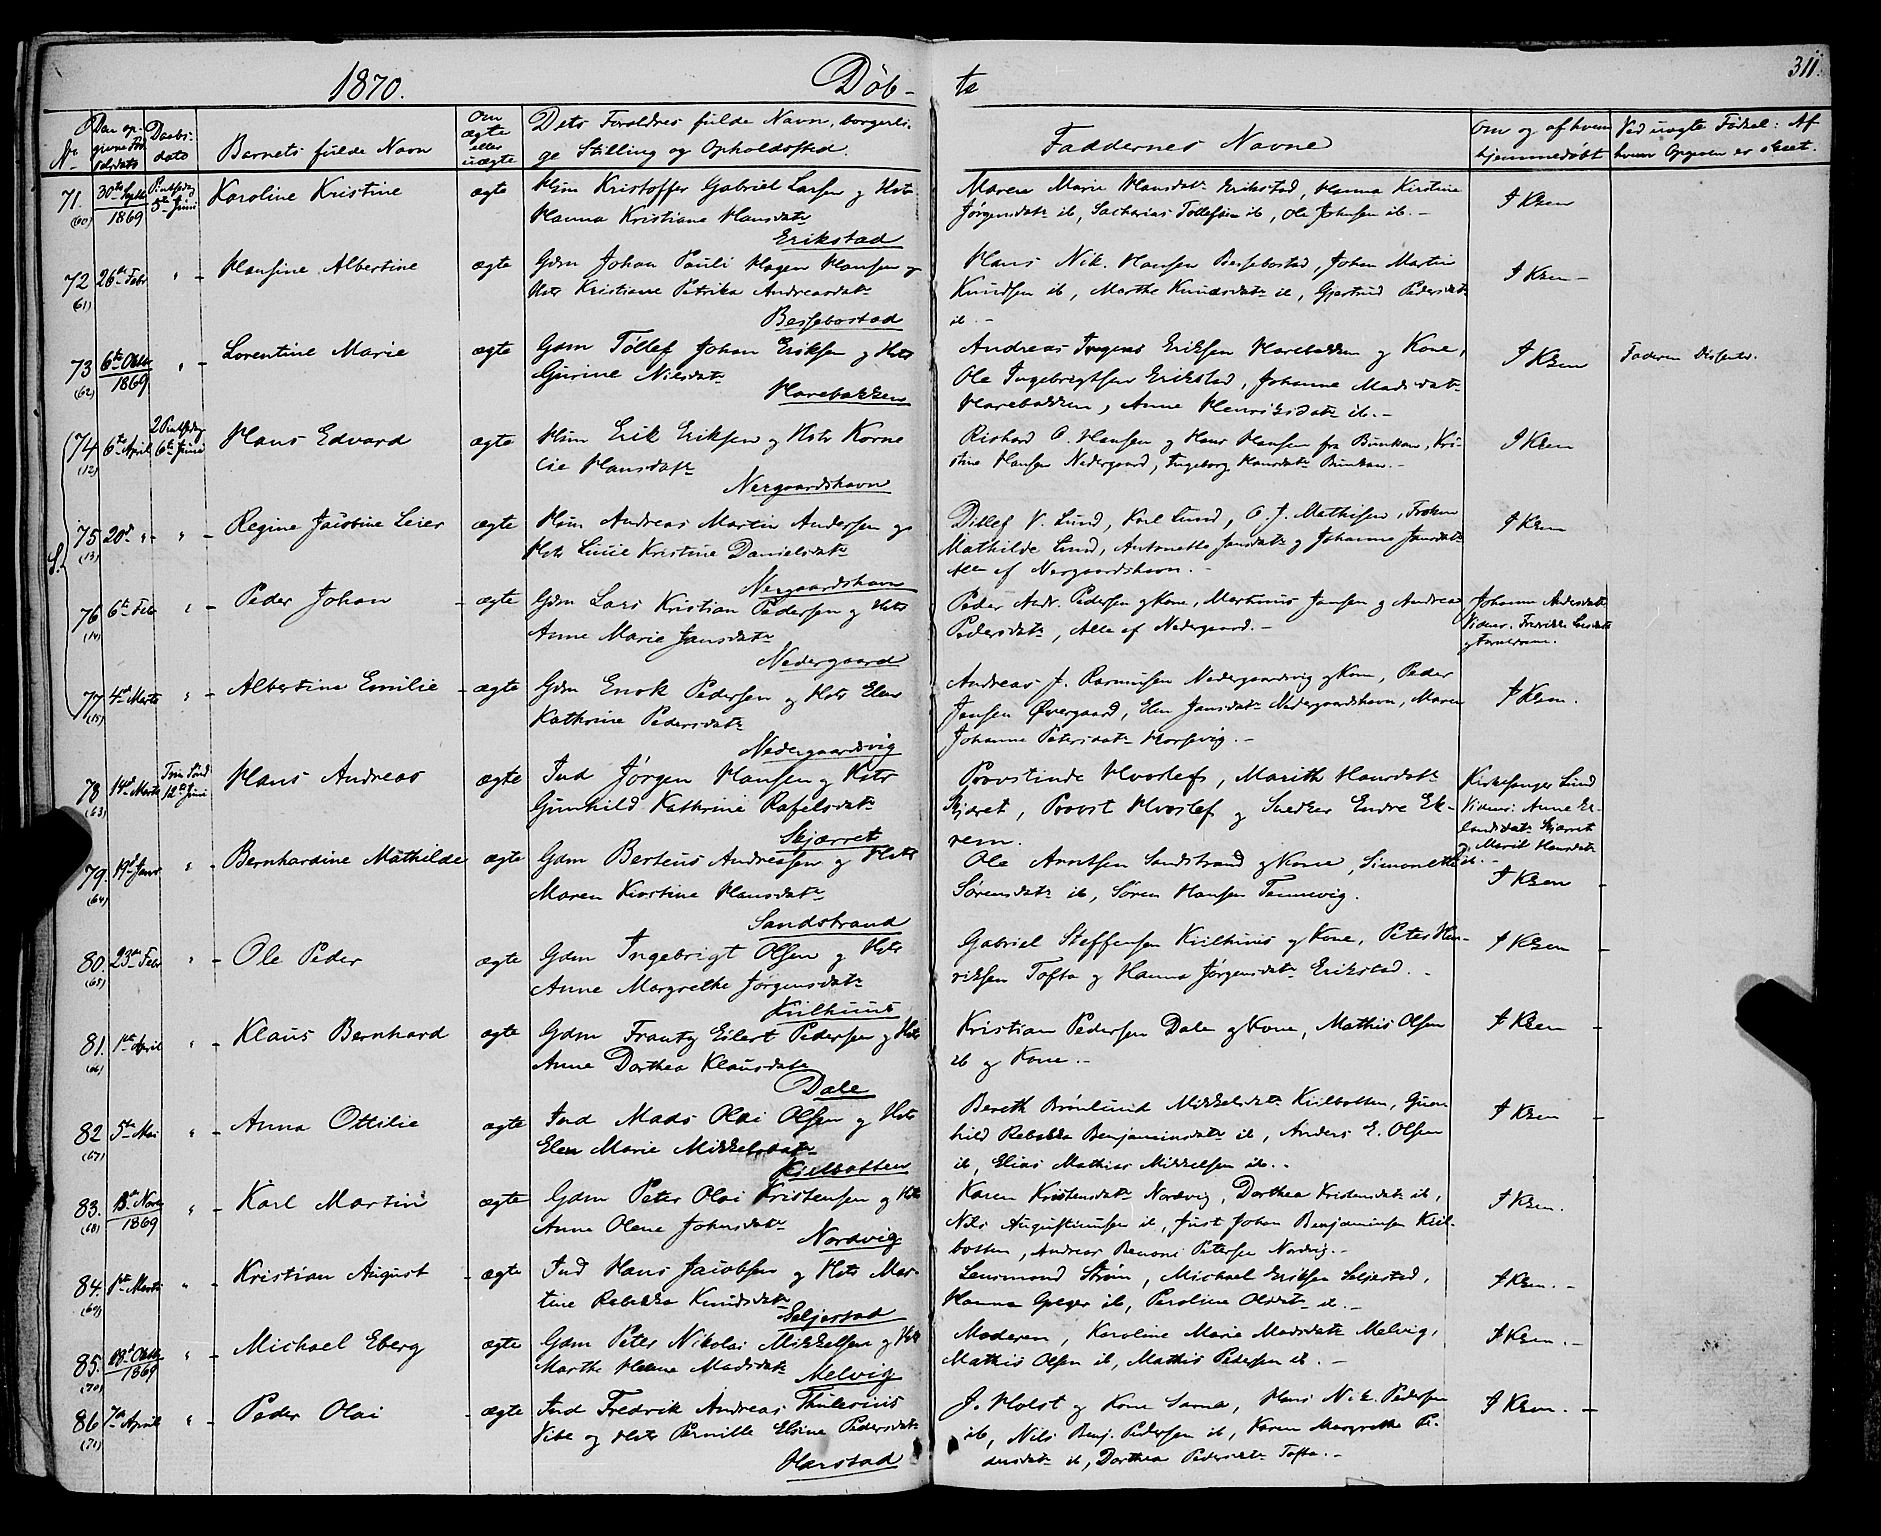 1870. Døb- te 311.
No Den opgivne Fødselsdato Daabsdato Barnets fulde Navn Om ægte eller uægte Dets Forældres fulde Navn, borgerlige Stilling og Opholdssted. Faddernes Navne Om og af hvem hjemmedøbt Ved uægte Fødsel: Af hvem Opgaven er skeet.
71. (60) 30te Septbr 1869 Pintsedag 5te Juni Karoline Kristine ægte Hsm Kristoffer Gabriel Larsen og Hstr
Hanna Kristiane Hansdatr
Erikstad
Maren Marie Hansdatr Erikstad, Hanna Kirstine
Jørgensdatr ib, Sacharias Tollefsen ib, Ole Johnsen ib. - I Krken
72 (61) 26de Febr " - Hansine Albertine ægte Gdm Johan Pauli Hagen Hansen og
Hstr Kristiane Petrika Andreasdatr
Bessebostad
Hans Nik. Hansen Bessebostad, Johan Martin
Knudsen ib, Marthe Knudsdatr ib, Gjertrud Pedersdatr
ib. - I Krken -
73 (62) 6te Oktbr 1869 " - Lorentine Marie ægte Gdm Tollef Johan Eriksen og Hstr
Gurine Nilsdatr
Harebakken
Andreas Eriksen Harebakken og Kone,
Ole Ingebrigtsen Erikstad, Johanne Madsdatr
Harebakken, Anne Henriksdatr ib. - I Krken Faderen Dissenter.
74 (12) 6te April 2 Pintsedag 6te Juni Hans Edvard ægte Hsm Erik Eriksen og Hstr Korne
lie Hansdatr
Nergaardshavn
Rishard O. Hansen og Hans Hansen fra Bunkan, Kri-
stine Hansen Nedergaard, Ingeborg Hansdatr Bunkan. - I Krken
75 (13) 20de " - " - Regine Jacobine Leier ægte Hsm Andreas Martin Andersen og
Hstr Linie Kristine Danielsdatr
Nergaardshavn
Ditlef V. Lund, Karl Lund, O. J. Mathisen, Frøken
Mathilde Lund, Antonette Jansdatr og Johanne Jansdatr
Alle af Nergaardshavn. - I Krken
76 (14) 6te Febr " - Peder Johan - ægte Gdm Lars Kristian Pedersen og Hstr
Anne Marie Jansdatr
Nedergaard
Peder Andr. Pedersen og Kone, Martinus Jansen og Andrea
Pedersdatr, Alle af Nedergaard. -
Johanna Andersdatr
Vidner: Fredrikke Larsdatr
og Forældrene.
77 (15) 4de Marts " - Albertine Emilie - ægte Gdm Enok Pedersen og Hstr Elen
Kathrine Pedersdatr
Nedergaardsvig
Andreas J. Rasmusen Nedergaardsvig og Kone, Peder
Jensen Øvergaard, Elen Jansdatr Nedergaardshavn, Maren
Johanne Petersdatr Horsevig. - I Krken.
78 (63) 14de Marts Trin. Sønd 12te Juni Hans Andreas ægte Ind Jørgen Hansen og Hstr
Gunhild Kathrine Rafelsdatr
Skjærret
Provstinde Hvoslef, Marith Hansdatr
Skjæret, Provst Hvoslef og Snedker Endre Ek-
rem.
Kirkesanger Lund
Vidner: Anne Er-
landsdatr Skjærret
og Marit Hansdatr
ib. -
79. (64) 19de Janr " - Bernhardine Mathilde ægte Gdm Berteus Andreassen og Hstr
Maren Kirstine Hansdatr
Sandstrand
Ole Arntsen Sandstrand og Kone, Simonette
Sørensdatr ib, Søren Hansen Tennevig. I Krken -
80. (65) 23de Febr " - Ole Peder ægte Gdm Ingebrigt Olsen og Hstr
Anne Margrethe Jørgensdatr
Kiilhuus
Gabriel Steffensen Kiilhuus og Kone, Peter Hen-
riksen Tofta og Hanna Jørgensdatr Erikstad. - I Krken -
81. (66) 1ste April " - Klaus Bernhard ægte Gdm Frantz Eilert Pedersen og Hstr
Anne Dorthea Klausdatr
Dale
Kristian Pedersen Dale og Kone, Mathis Olsen
ib og Kone. - I Krken -
82 (67) 5te Mai " - Anna Ottilie ægte Ind Mads Olai Olsen og Hstr
Elen Marie Mikkelsdatr
Kiilbotten
Bereth Brønlund Mikkelsdatr Kiilbotten, Gun-
hild Rebekka Benjaminsdatr ib, Anders E. Olsen
ib, Elias Mathias Mikkelsen ib. - I Krken -
83. (68) 18de Novbr 1869 " - Karl Martin ægte Gdm Peter Olai Kristensen og Hstr
Anne Olene Johnsdatr
Nordvig
Karen Kristensdatr Nordvig, Dorthea Kristensdatr ib,
Nils Augustinusen ib, Just Johan Benjaminsen Kiil-
botten, Andreas Benoni Petersen Nordvig. - I Krken.
84. (69) 1ste Marts " - Kristian August - ægte Ind Hans Jacobsen og Hstr Mar-
tine Rebekka Knudsdatr
Seljestad
Lensmand Strøm, Michael Eriksen Seljestad,
Hanna Greger ib, Paroline Olsdatr ib. - I Krken. -
85. (70) 18de Oktbr 1869 " - Michael Eberg ægte Gdm Peter Nikolai Mikkelsen og Hstr
Marthe Helene Madsdatr
Melvig
Moderen, Karoline Marie Madsdatr Melvig,
Mathis Olsen ib, Mathis Pedersen ib. - I Krken. -
86 (71) 7de April " - Peder Olai - ægte Ind Fredrik Andreas Thulesius
Vibe og Hstr Pernille Elsine Pedersdatr
Harstad
J. Holst og Kone Sama, Hans Nik. Pedersen
ib, Nils Benj. Pedersen ib, Karen Margrethe Pe-
dersdatr ib, Dorthea Pedersdatr Tofta. - I Krken. -